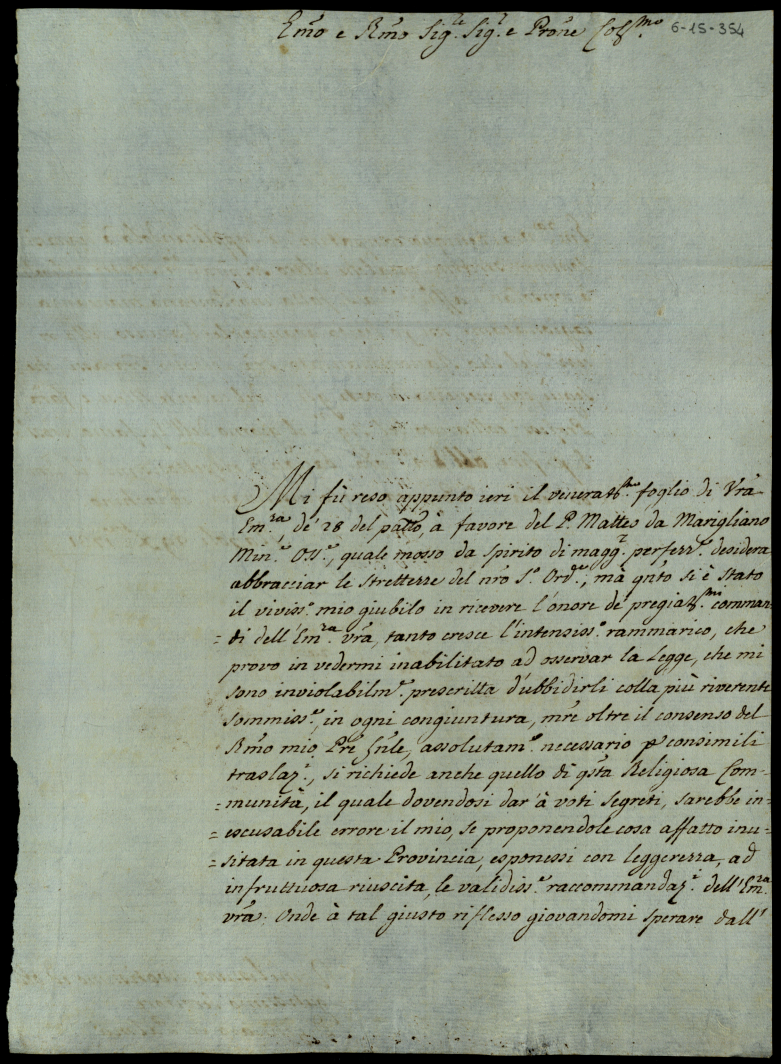 Emo e Rmo Sig.e Sig.r e Prone Colmo 6-15-354
Mi fù reso appunto ieri il veneratmo foglio di Vrã
Em.za de' 28 del patto, à favore del P. Matteo da Marigliano
Min.e Oss.e, quale mosso da spirito di magg.r perfezz.e desidera
abbracciar le strettezze del nro S.o Ord.e, mà qnto si è stato
il viviss.o mio giubilo in ricevere l'onore de' pregiatmi comman=
=di dell'Em.za vrã, tanto cresce l'intensiss.o rammarico, che
provo in vedermi inabilitato ad osservar la Legge, che mi
sono inviolabilm.e prescritta d'ubbidirli colla più riverente
sommiss.e in ogni congiuntura, mre oltre il consenso del
Rmo mio Pre Gnle, assolutam.e necessario p consimili
traslaz.i, si richiede anche quello di qsta Religiosa Com=
=munità, il quale dovendosi dar' à voti segreti, sarebbe in=
=escusabile errore il mio, se proponendole cosa affatto inu=
=sitata in questa Provincia, esponessi con leggerezza, ad
infruttuosa riuscita, le validiss.e raccommandaz.i dell'Em.za
vrã. Onde à tal giusto riflesso giovandomi sperare dall'